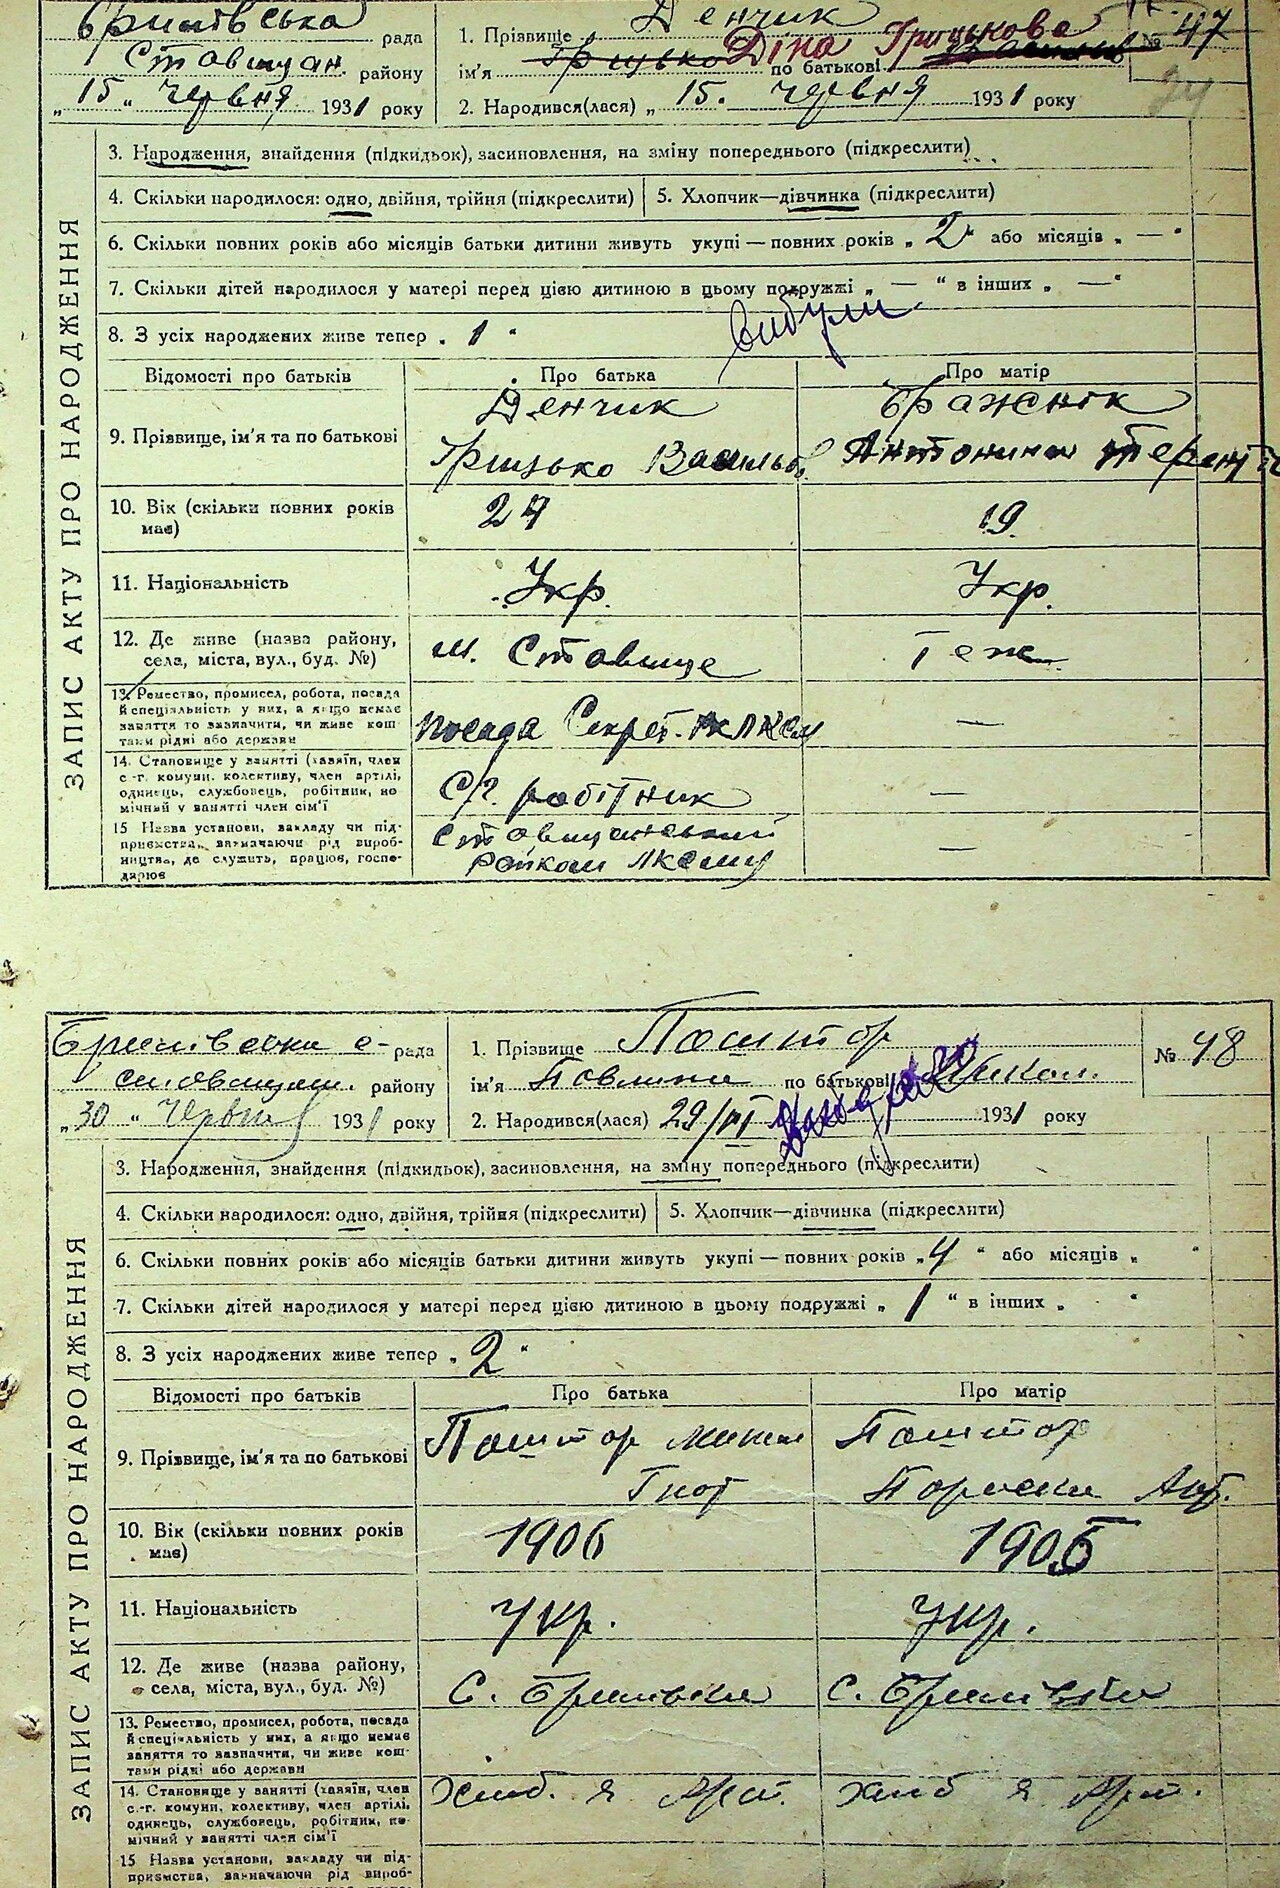 рада
Ставищан. району
„15„ Червня 1931 року
1. Прізвище Денчик
ім'я Грицько Діна по батькові Грицькова
№ 47
24
2. Народився(лася) „15. червня 1931 року
ЗАПИС АКТУ ПРО НАРОДЖЕННЯ
3. Народження, знайдення (підкидьок), засиновлення, на зміну попереднього (підкреслити)
4. Скільки народилося: одно, двійня, трійня (підкреслити)
5. Хлопчик—дівчинка (підкреслити)
6. Скільки повних років або місяців батьки дитини живуть укупі — повних років „2“ або місяців „—“
7. Скільки дітей народилося у матері перед цією дитиною в цьому подружжі „—“ в інших „—“
вибули
8. З усіх народжених живе тепер „1“
Відомості про батьків
Про батька
Про матір
9. Прізвище, ім'я та по батькові
Денчик
Грицько Васильов.
Бражнік
Антонина
10. Вік (скільки повних років має)
19
11. Національність
Укр.
Укр.
12. Де живе (назва району, села, міста, вул., буд. №)
м. Ставище
Теж
13. Ремество, промисел, робота, посада й спеціяльність у них, а якщо немає заняття то зазначити, чи живе коштами рідні або держави
посада Секрет.
—
14. Становище у занятті (хазяїн, член с.-г. комуни, колективу, член артілі, одинець, службовець, робітник, помічний у занятті член сім'ї
С/г. робітник
—
15 Назва установи, закладу чи підприємства, зазначаючи рід виробництва, де служить, працює, господарює
Ставищанський
райком ЛКСМУ
—
рада
ставищан. району
„30“ Червня 1931 року
1. Прізвище Паштор
ім'я Павлина по батькові Микол.
№ 48
2. Народився(лася) 29/VI 1931 року
ЗАПИС АКТУ ПРО НАРОДЖЕННЯ
3. Народження, знайдення (підкидьок), засиновлення, на зміну попереднього (підкреслити)
4. Скільки народилося: одно, двійня, трійня (підкреслити)
5. Хлопчик—дівчинка (підкреслити)
6. Скільки повних років або місяців батьки дитини живуть укупі — повних років „4“ або місяців „ “
7. Скільки дітей народилося у матері перед цією дитиною в цьому подружжі „1“ в інших „ “
8. З усіх народжених живе тепер „2“
Відомості про батьків
Про батька
Про матір
9. Прізвище, ім'я та по батькові
Паштор
Гнат
Паштор
Параска
10. Вік (скільки повних років має)
1906
1905
11. Національність
укр.
укр.
12. Де живе (назва району, села, міста, вул., буд. №)
с. Брилівка
с. Брилівка
13. Ремество, промисел, робота, посада й спеціяльність у них, а якщо немає заняття то зазначити, чи живе коштами рідні або держави
14. Становище у занятті (хазяїн, член с.-г. комуни, колективу, член артілі, одинець, службовець, робітник, помічний у занятті член сім'ї
Хліб.
Хліб
15 Назва установи, закладу чи підприємства, зазначаючи рід вироб-